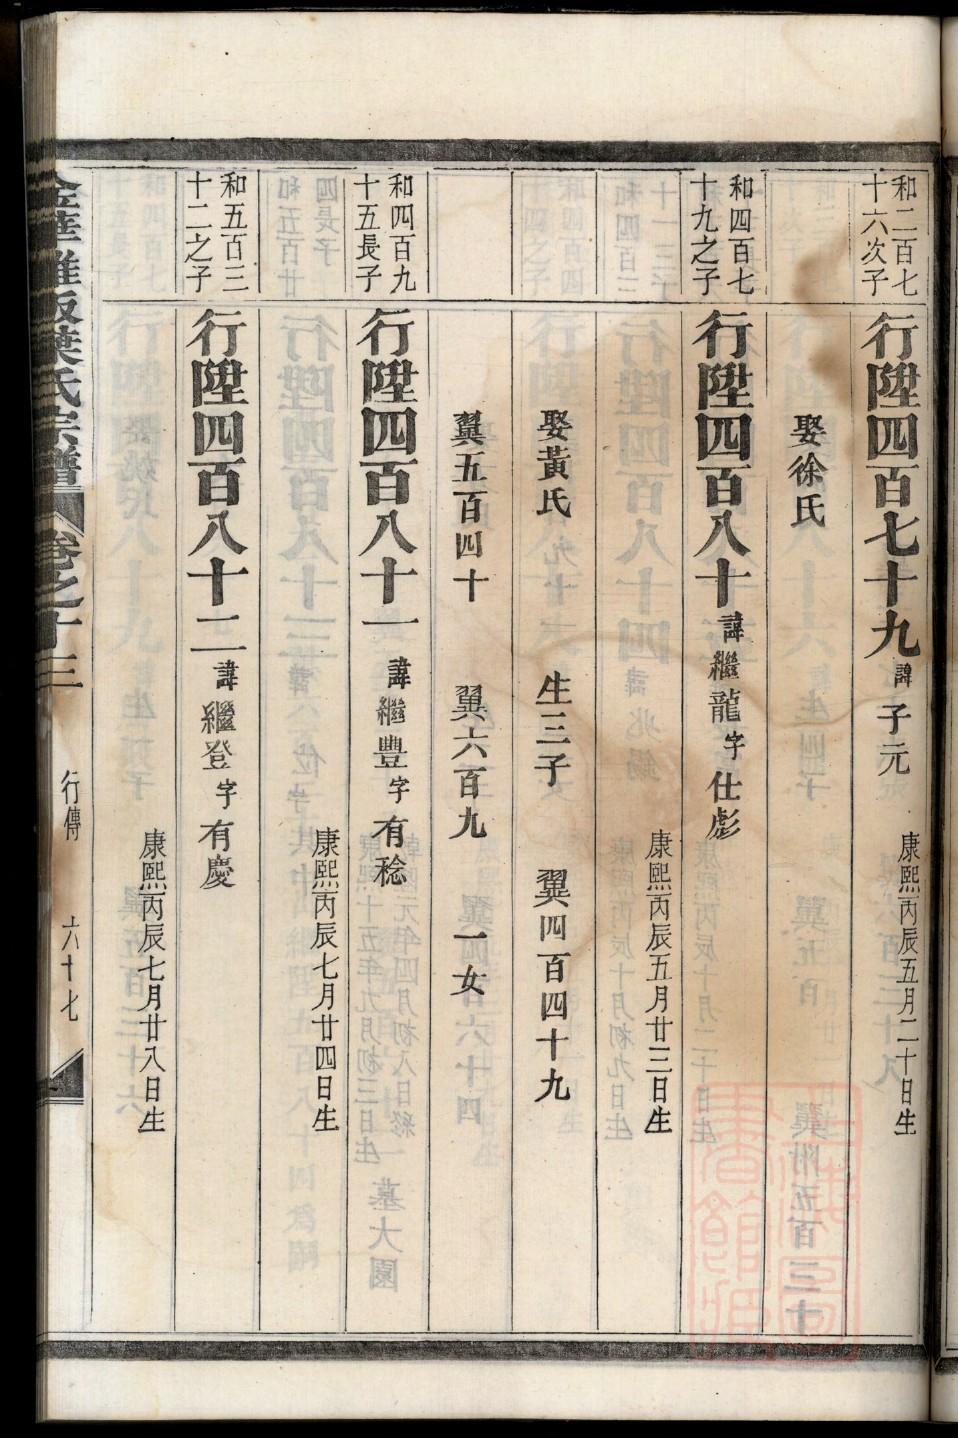 和二百七
十六次子
行陞四百七十九 諱子元
康熙丙辰五月二十日生
娶徐氏
和四百七
十九之子
行陞四百八十 諱繼龍字仕彪
康熙丙辰五月廿三日生
娶黃氏 生三子 翼四百四十九
翼五百四十 翼六百九 一女
和四百九
十五長子
行陞四百八十一 諱繼豐字有稔
康熙丙辰七月廿四日生
和五百三
十二之子
行陞四百八十二 諱繼登字有慶
康熙丙辰七月廿八日生
金華雅畈葉氏宗譜 卷之十三 行傳 六十七